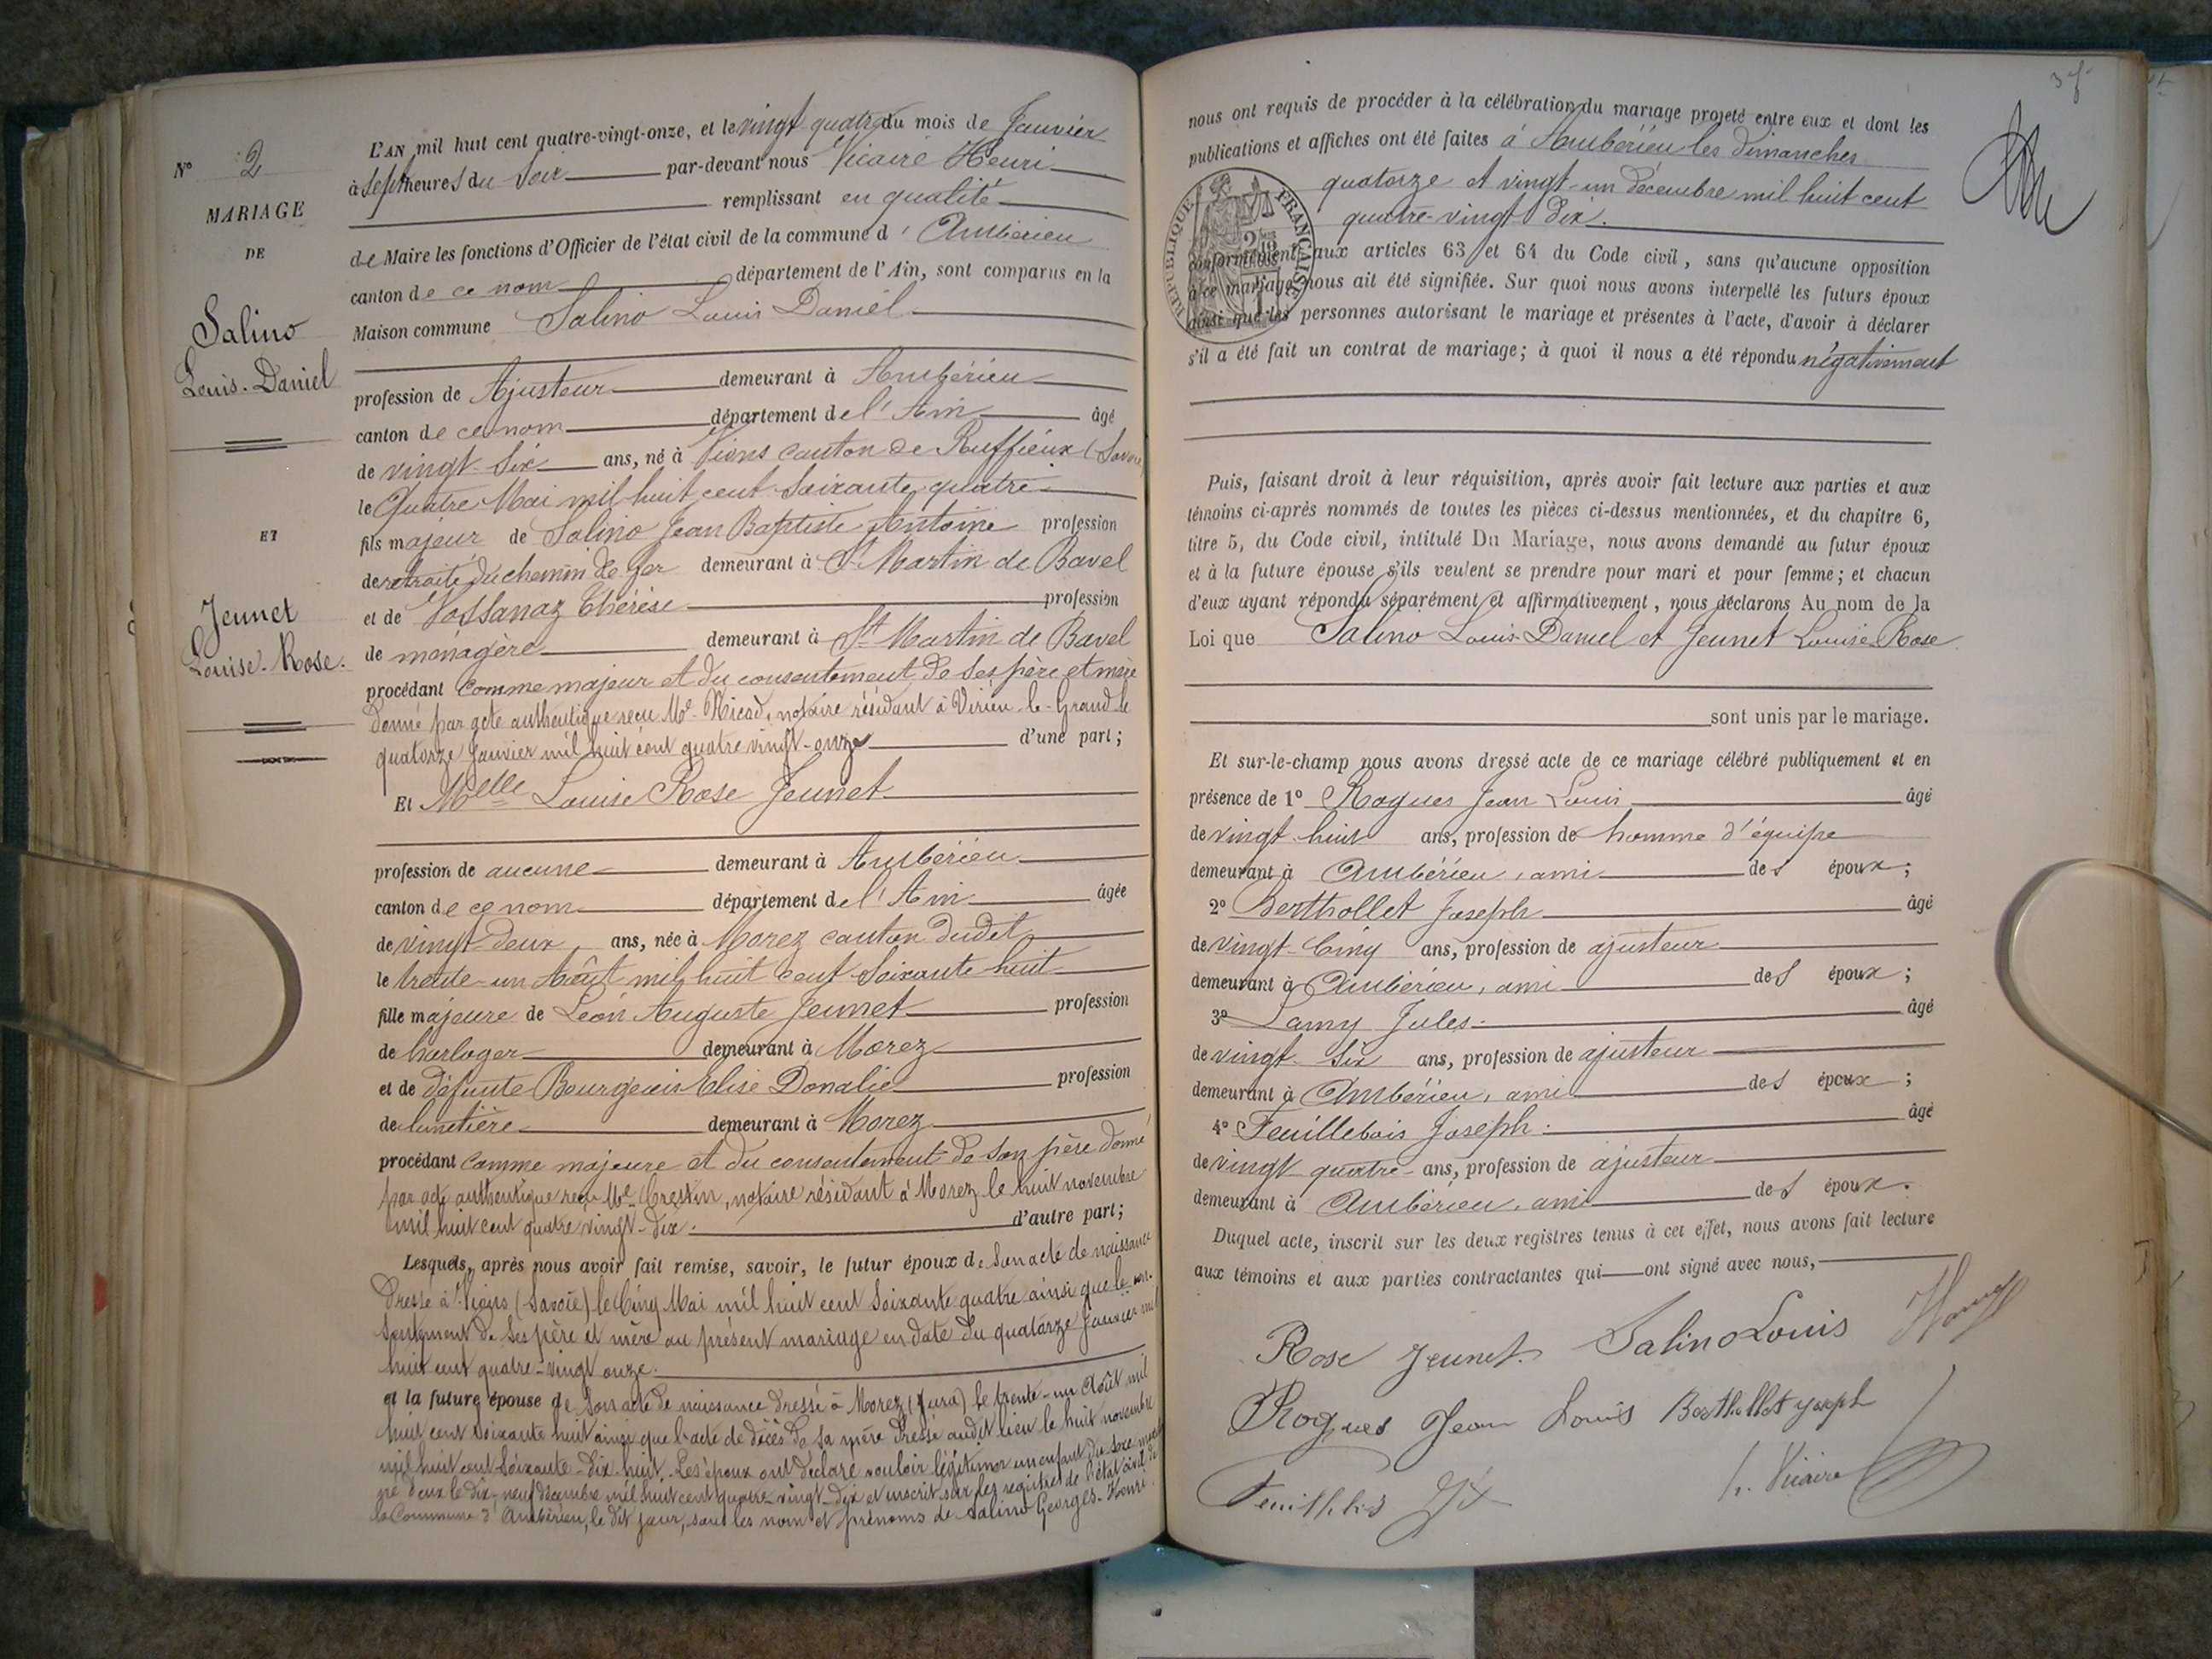 N° 2
MARIAGE
DE
Salino
Louis-Daniel
ET
Jeunet
Louise-Rose.
L'AN mil huit cent quatre-vingt-onze, et le vingt quatre du mois de Janvier
à sept heures du soir par-devant nous Vicaire Henri
remplissant en qualité
de Maire les fonctions d'Officier de l'état civil de la commune d'Ambérieu
canton de ce nom département de l'Ain, sont comparus en la
Maison commune Salino Louis Daniel
profession de Ajusteur demeurant à Ambérieu
canton de ce nom département de l'Ain âgé
de vingt-six ans, né à Vions canton de Ruffieux (Savoie
le Quatre Mai mil huit cent soixante-quatre
fils majeur de Salino Jean Baptiste Antoine profession
de retraité du chemin de fer demeurant à St Martin de Bavel
et de Vossanaz Thérèse profession
de ménagère demeurant à St Martin de Bavel
procédant comme majeur et du consentement de ses père et mère
donné par acte authentique reçu Me Nicod, notaire résidant à Virieu-le-Grand le
quatorze Janvier mil huit cent quatre vingt-onze d'une part;
Et Melle Louise Rose Jeunet
profession de aucune demeurant à Ambérieu
canton de ce nom département de l'Ain âgée
de vingt-deux ans, née à Morez canton dudit
le trente-un Août mil huit cent soixante huit
fille majeure de Léon Auguste Jeunet profession
de horloger demeurant à Morez
et de défunte Bourgeois Elise Donalie profession
de lunetière demeurant à Morez
procédant comme majeure et du consentement de son père donné
par acte authentique reçu Me Crestin, notaire résidant à Morez le huit novembre
mil huit cent quatre vingt-dix. d'autre part;
Lesquels, après nous avoir fait remise, savoir, le futur époux de son acte de naissance
dressé à Vions (Savoie) le cinq Mai mil huit cent soixante quatre ainsi que le con-
sentement de ses père et mère au présent mariage en date du quatorze Janvier mil
huit cent quatre-vingt onze.
et la future épouse de son acte de naissance dressé à Morez (Jura) le trente-un Août mil
huit cent soixante huit ainsi que l'acte de décès de sa mère dressé audit lieu le huit novembre
mil huit cent soixante-dix-huit. Les époux ont déclaré vouloir légitimer un enfant du sexe
né d'eux le dix-neuf décembre mil huit cent quatre-vingt-dix et inscrit sur les registres de l'état civil de
la Commune d'Ambérieu, le dit jour, sous les nom et prénoms de Salino Georges-Henri.
nous ont requis de procéder à la célébration du mariage projeté entre eux et dont les
publications et affiches ont été faites à Ambérieu les dimanches
quatorze et vingt-un décembre mil huit cent
quatre-vingt dix.
RÉPUBLIQUE FRANÇAISE
conformément aux articles 63 et 64 du Code civil, sans qu'aucune opposition
à ce mariage nous ait été signifiée. Sur quoi nous avons interpellé les futurs époux
ainsi que les personnes autorisant le mariage et présentes à l'acte, d'avoir à déclarer
s'il a été fait un contrat de mariage; à quoi il nous a été répondu négativement
Puis, faisant droit à leur réquisition, après avoir fait lecture aux parties et aux
témoins ci-après nommés de toutes les pièces ci-dessus mentionnées, et du chapitre 6,
titre 5, du Code civil, intitulé Du Mariage, nous avons demandé au futur époux
et à la future épouse s'ils veulent se prendre pour mari et pour femme; et chacun
d'eux ayant répondu séparément et affirmativement, nous déclarons Au nom de la
Loi que Salino Louis-Daniel et Jeunet Louise Rose
sont unis par le mariage.
Et sur-le-champ nous avons dressé acte de ce mariage célébré publiquement et en
présence de 1° Rogues Jean Louis âgé
de vingt-huit ans, profession de homme d'équipe
demeurant à Ambérieu, ami des époux;
2° Berthollet Joseph âgé
de vingt-Cinq ans, profession de ajusteur
demeurant à Ambérieu, ami des époux;
3° Lamy Jules. âgé
de vingt-six ans, profession de ajusteur
demeurant à Ambérieu, ami des époux;
4° Feuillebois Joseph. âgé
de vingt quatre ans, profession de ajusteur
demeurant à Ambérieu, ami des époux.
Duquel acte, inscrit sur les deux registres tenus à cet effet, nous avons fait lecture
aux témoins et aux parties contractantes qui ont signé avec nous,
Rose Jeunet. Salino Louis
Rogues Jean Louis Berthollet Joseph
h. Vicaire